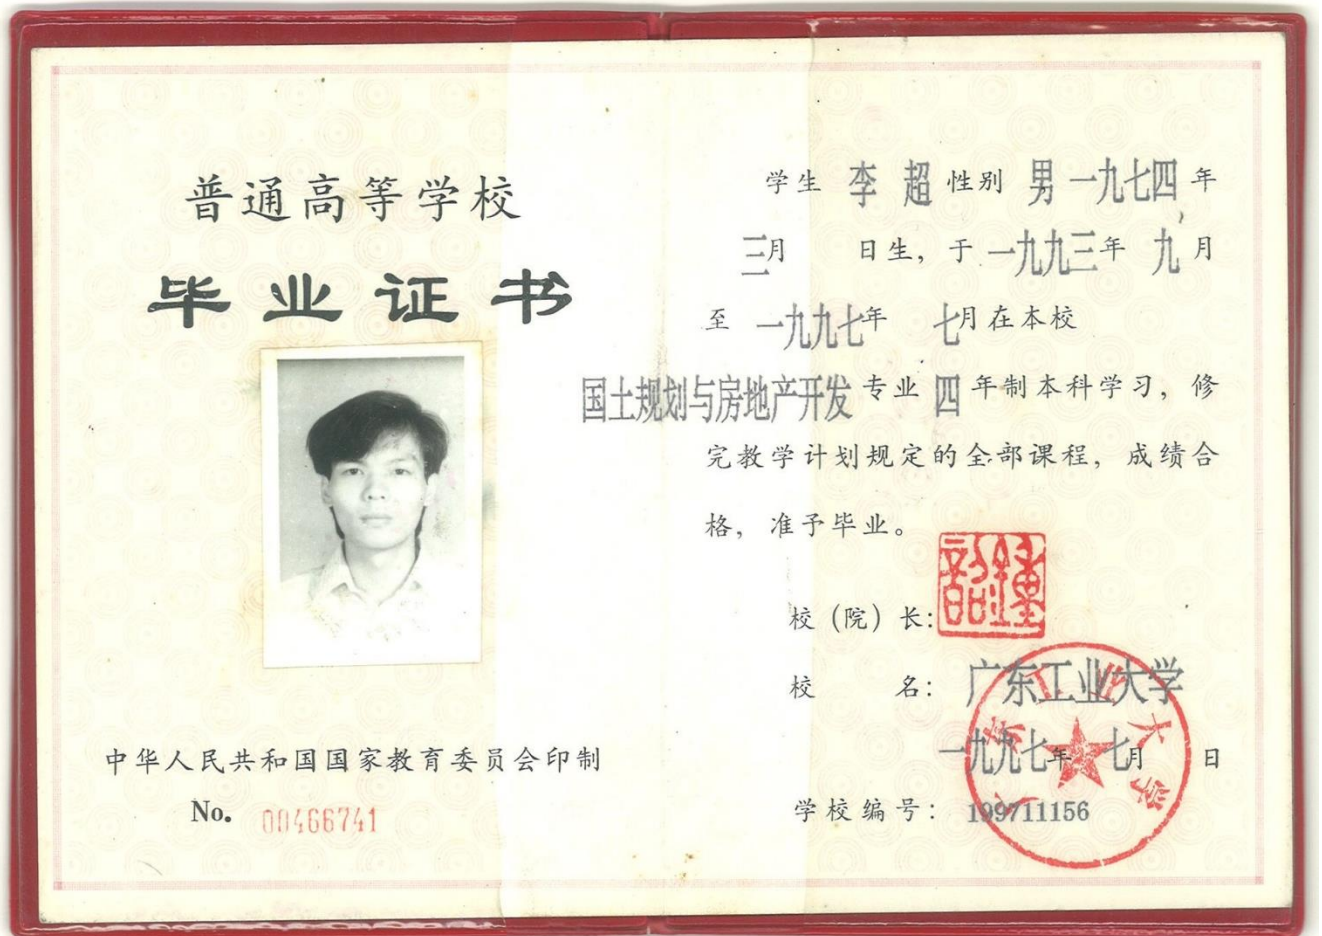 普通高等学校
毕业证书
中华人民共和国国家教育委员会印制
No. 00466741
学生 李 超 性别 男 一九七四 年
三月 日生，于 一九九三年 九月
至 一九九七年 七月在本校
国土规划与房地产开发 专业 四 年制本科学习，修
完教学计划规定的全部课程，成绩合
格，准予毕业。
校（院）长：
校 名： 广东工业大学
一九九七年 七月 日
学校编号： 199711156
广东工业大学